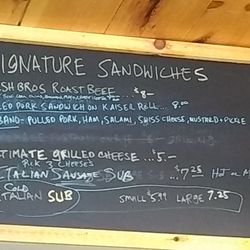 IGNATURE SANDWICHES
SH BROS ROAST BEEF ... 8-
ED PORK SANDWICH ON KAISER ROLL ... 8.00
BANO - PULLED PORK, HAM, SALAMI, SWISS CHEESE, MUSTARD + PICKLE
TIMATE GRILLED CHEESE ... $5.-
PICK 3 CHEESES
TALIAN SAUSAGE SUB ... 7.25 HOT or
COLD
TALIAN SUB SMALL 5.99 LARGE 7.25